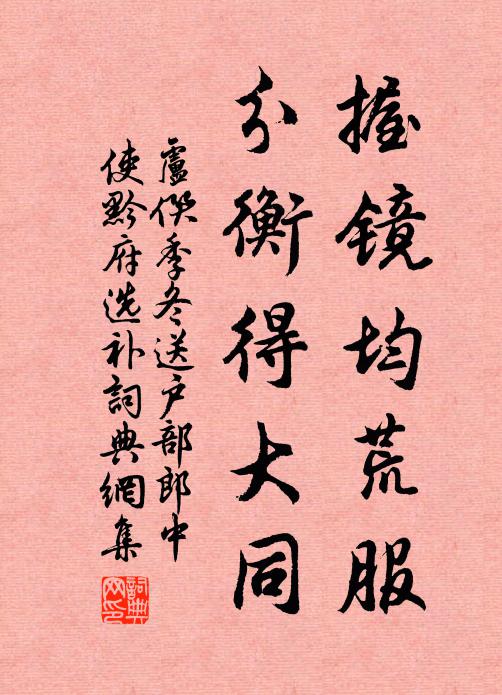 握镜均荒服
分衡得大同
盧僎季冬送户部郎中
使黔府选补詞典網集
詞典
网印